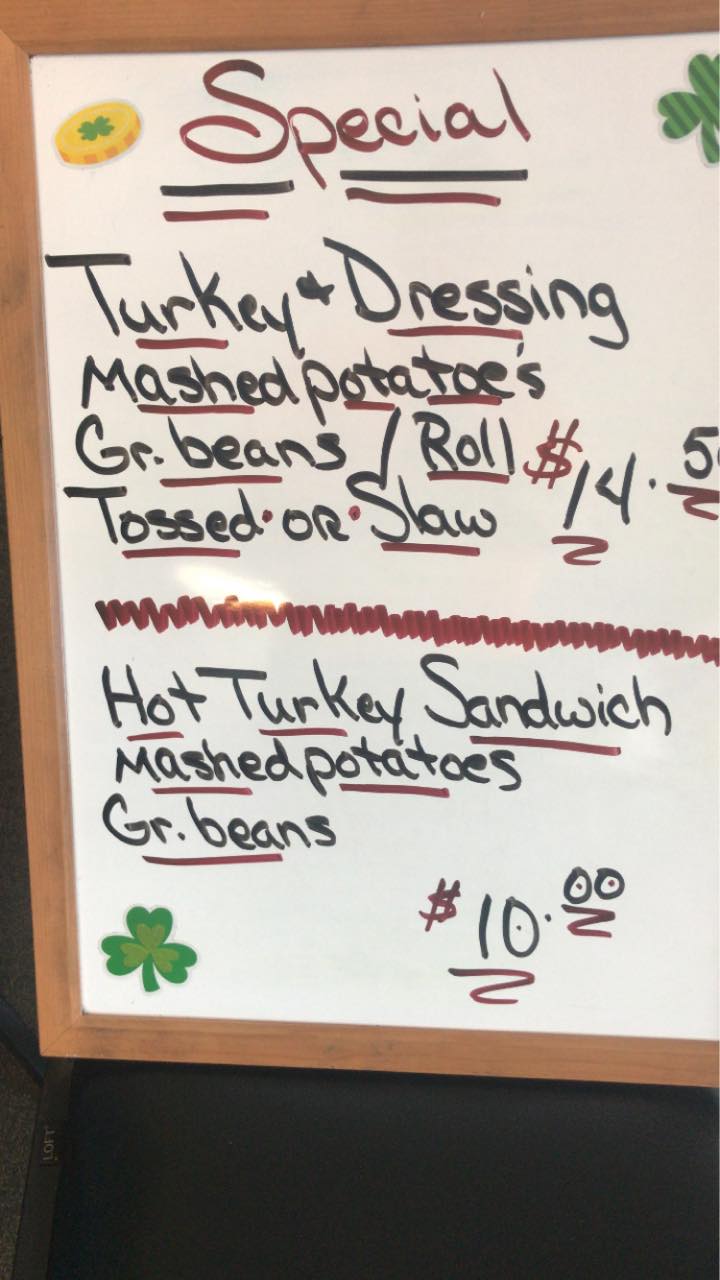 Special
Turkey & Dressing
Mashed potatoe's
Gr. beans / Roll
Tossed • OR • Slaw $14.5
Hot Turkey Sandwich
Mashed potatoes
Gr. beans
$10.00
LOFT